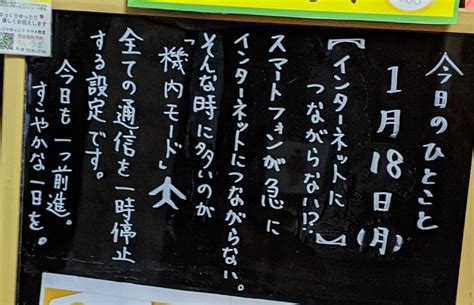 今日のひとこと
1月18日(月)
【インターネットに
つながらない!?】
スマートフォンが急に
インターネットにつながらない。
そんな時に多いのが
「機内モード」
全ての通信を一時停止
する設定です。
今日も一つ前進。
すこやかな一日を。